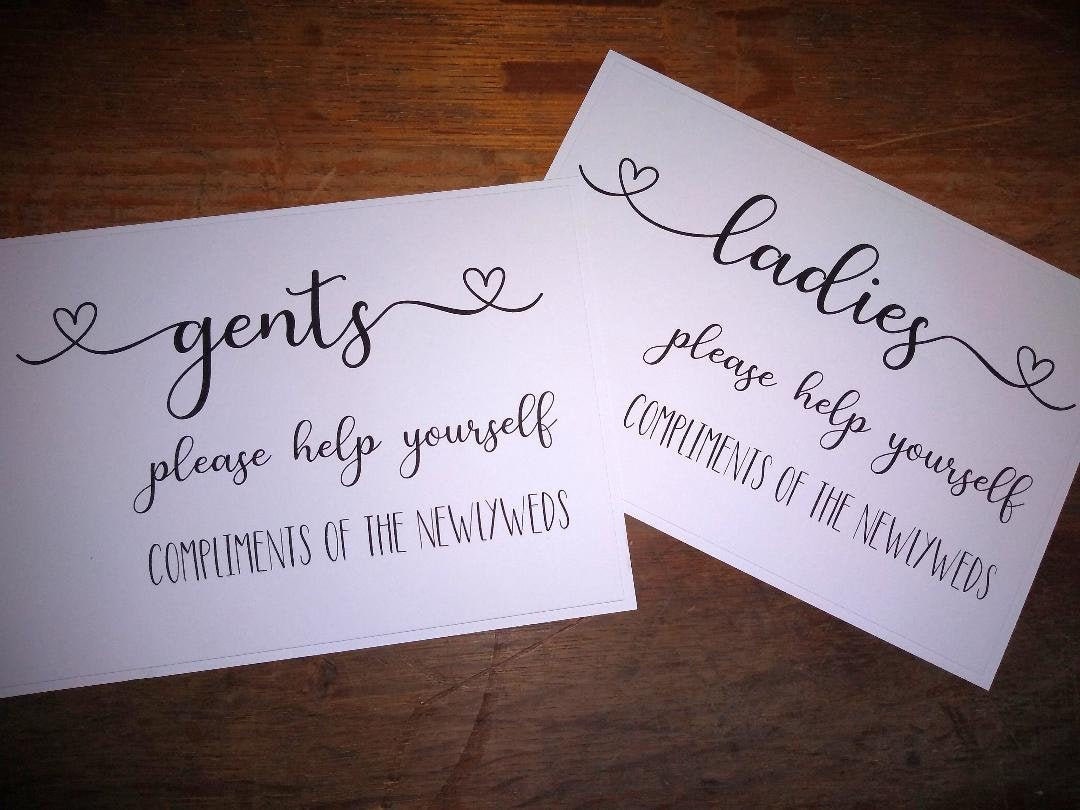 gents
please help yourself
COMPLIMENTS OF THE NEWLYWEDS
ladies
please help yourself
COMPLIMENTS OF THE NEWLYWEDS